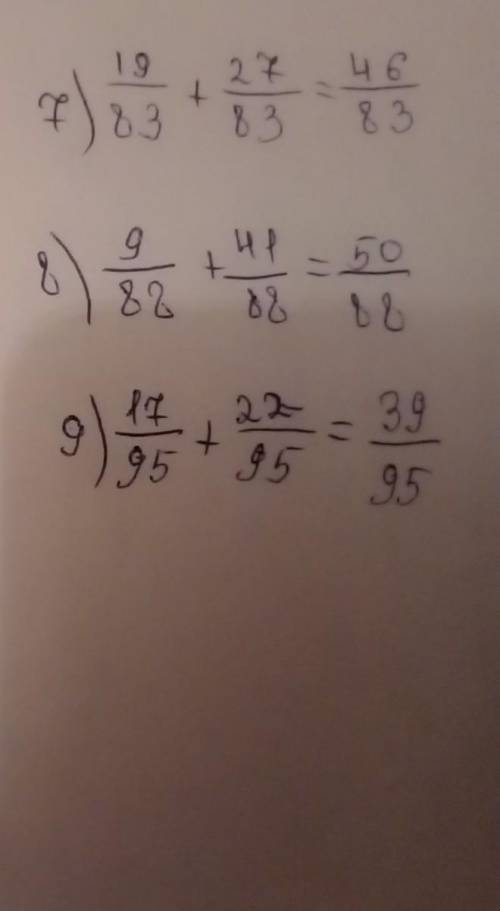 7) 19/83 + 27/83 = 46/83
8) 9/88 + 41/88 = 50/88
9) 17/95 + 22/95 = 39/95